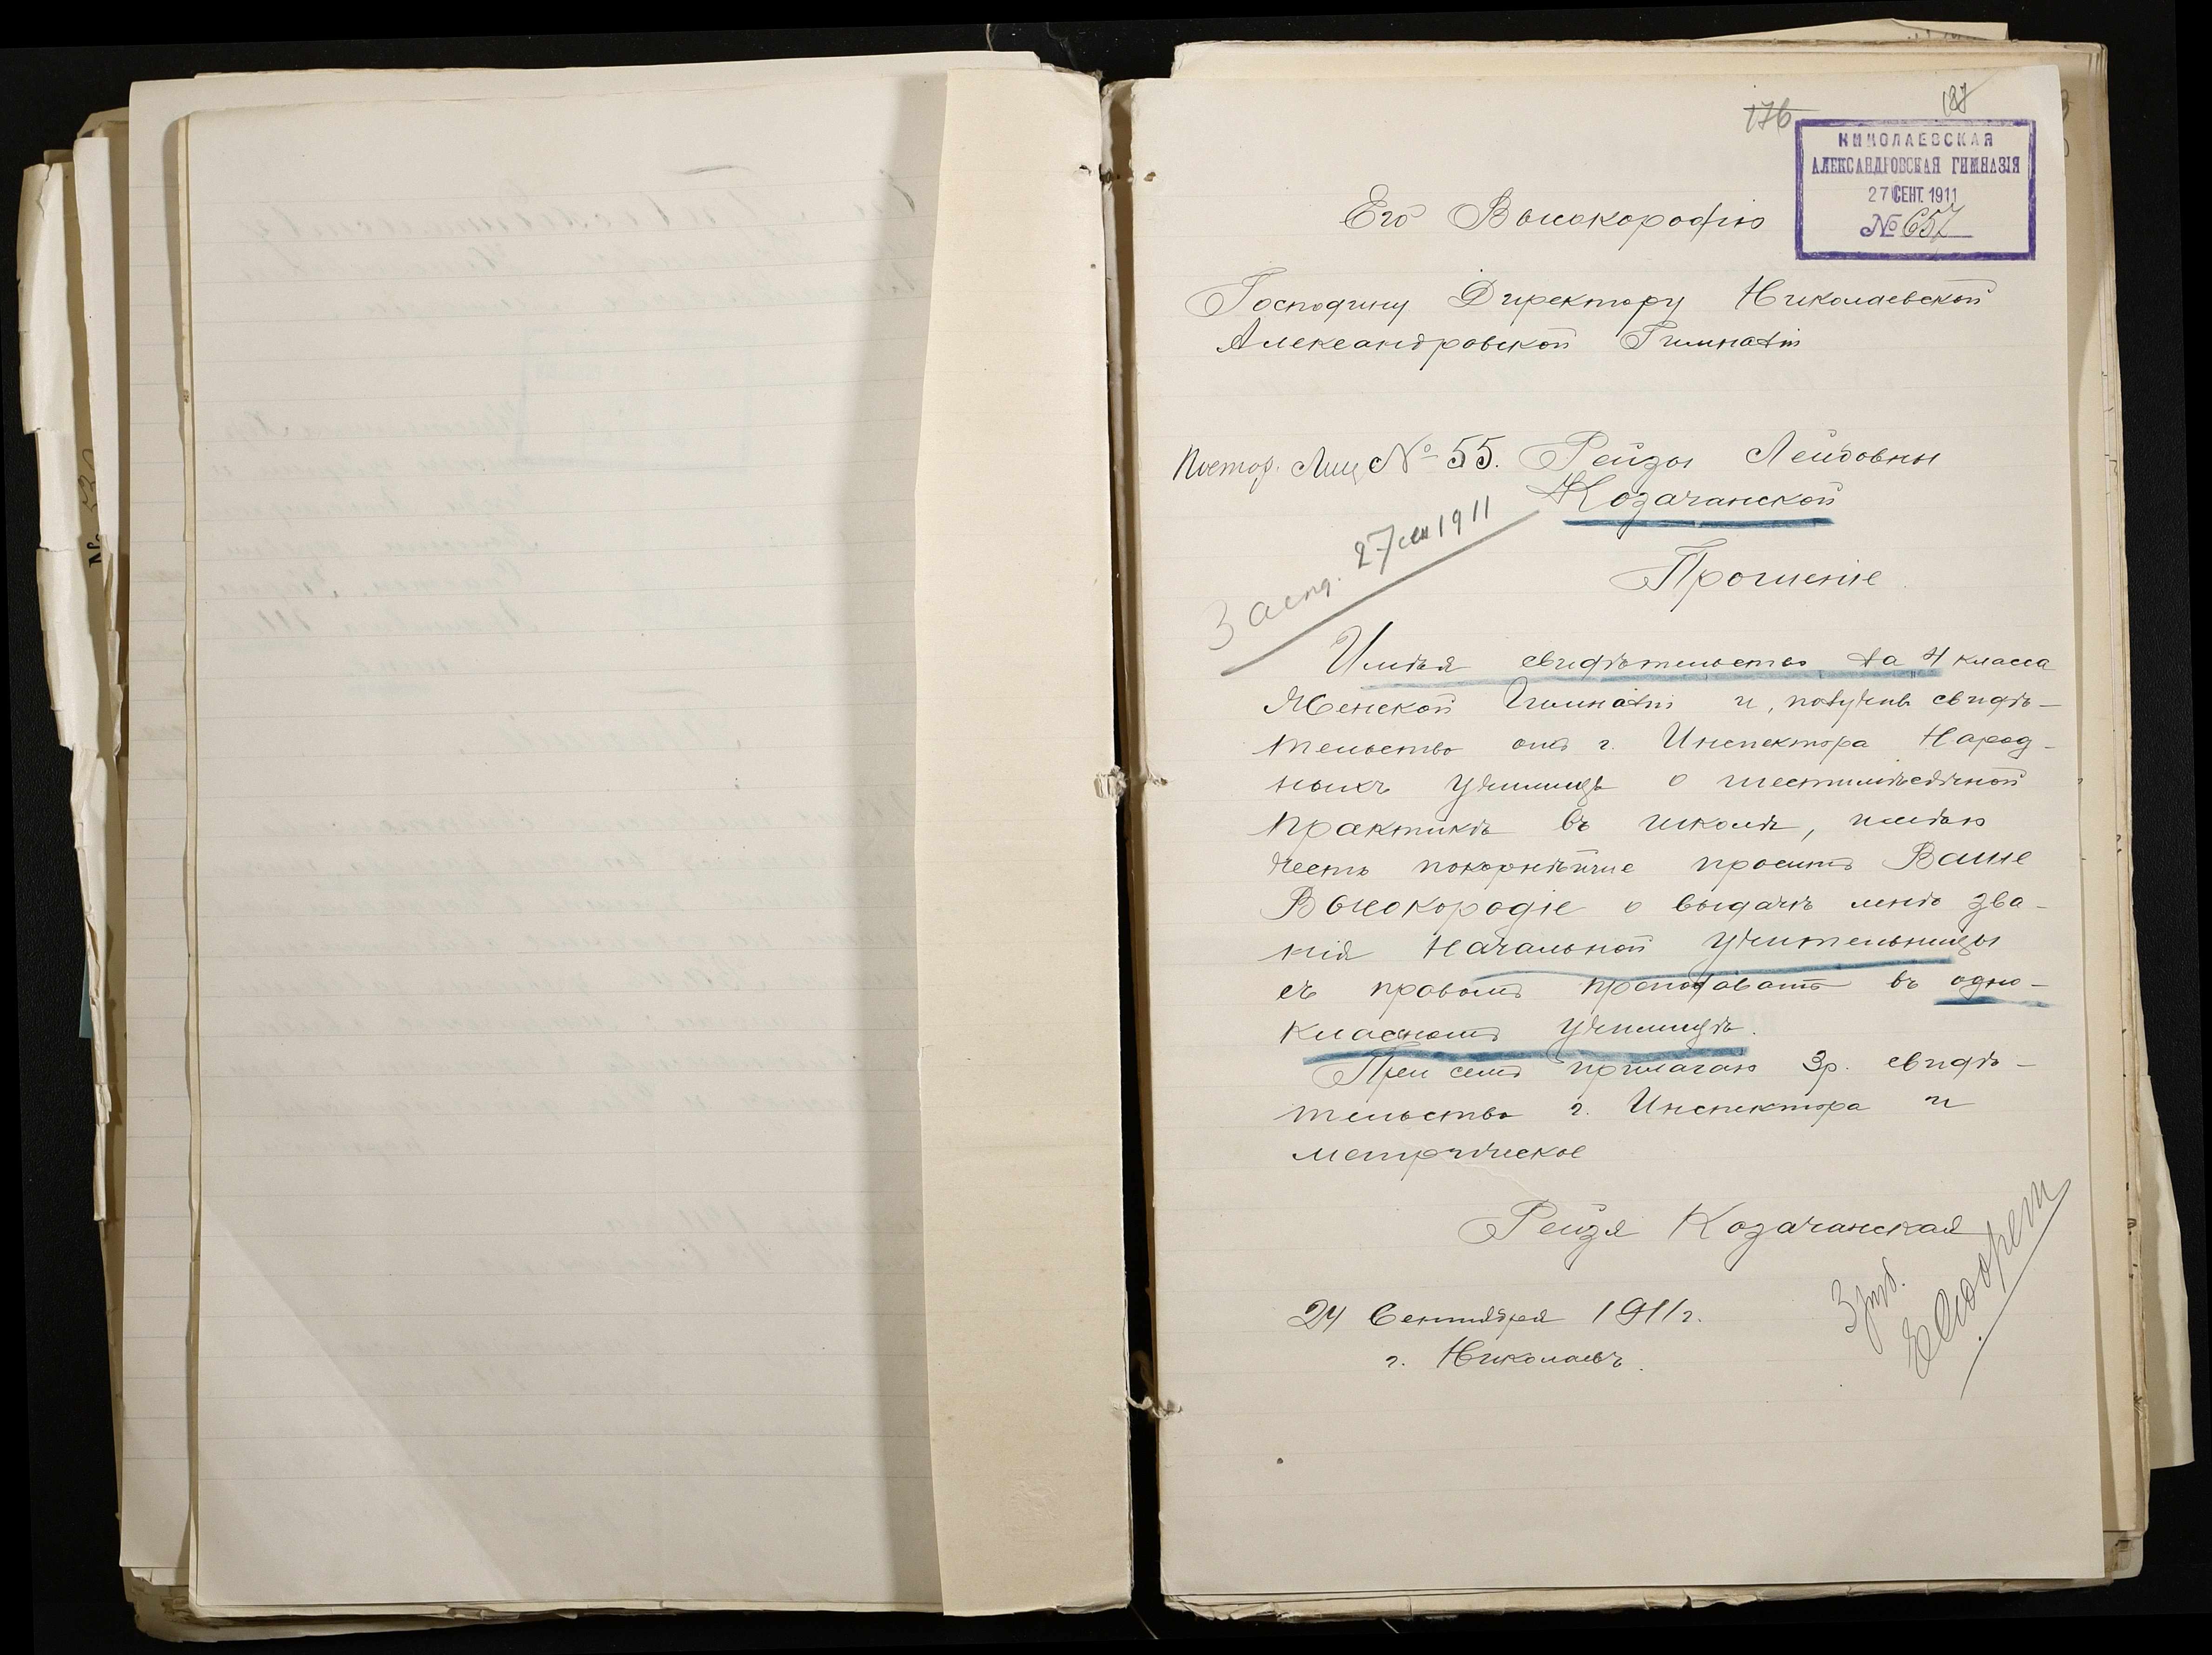 176 187
НИКОЛАЕВСКАЯ
АЛЕКСАНДРОВСКАЯ ГИМНАЗІЯ
27 СЕНТ. 1911
№ 657
Его Высокородію
Господину Директору Николаевской
Александровской Гимназіи
Постор. Лиц № 55. Рейзы Лейбовны
Козачанской
27 сен 1911
Прошеніе
Имѣя свидѣтельство за 4 класса
Женской Гимназіи и, получивъ свидѣ-
тельство отъ г. Инспектора Народ-
ныхъ училищъ о шестимѣсячной
практикѣ въ школѣ, имѣю
честь покорнѣйше просить Ваше
Высокородіе о выдачѣ мнѣ зва-
нія Начальной учительницы
съ правомъ преподавать въ одно-
классномъ училищѣ.
При семъ прилагаю 3р. свидѣ-
тельство г. Инспектора и
метрическое
Рейзя Козачанская
24 Сентября 1911 г.
г. Николаевъ.
3 руб.